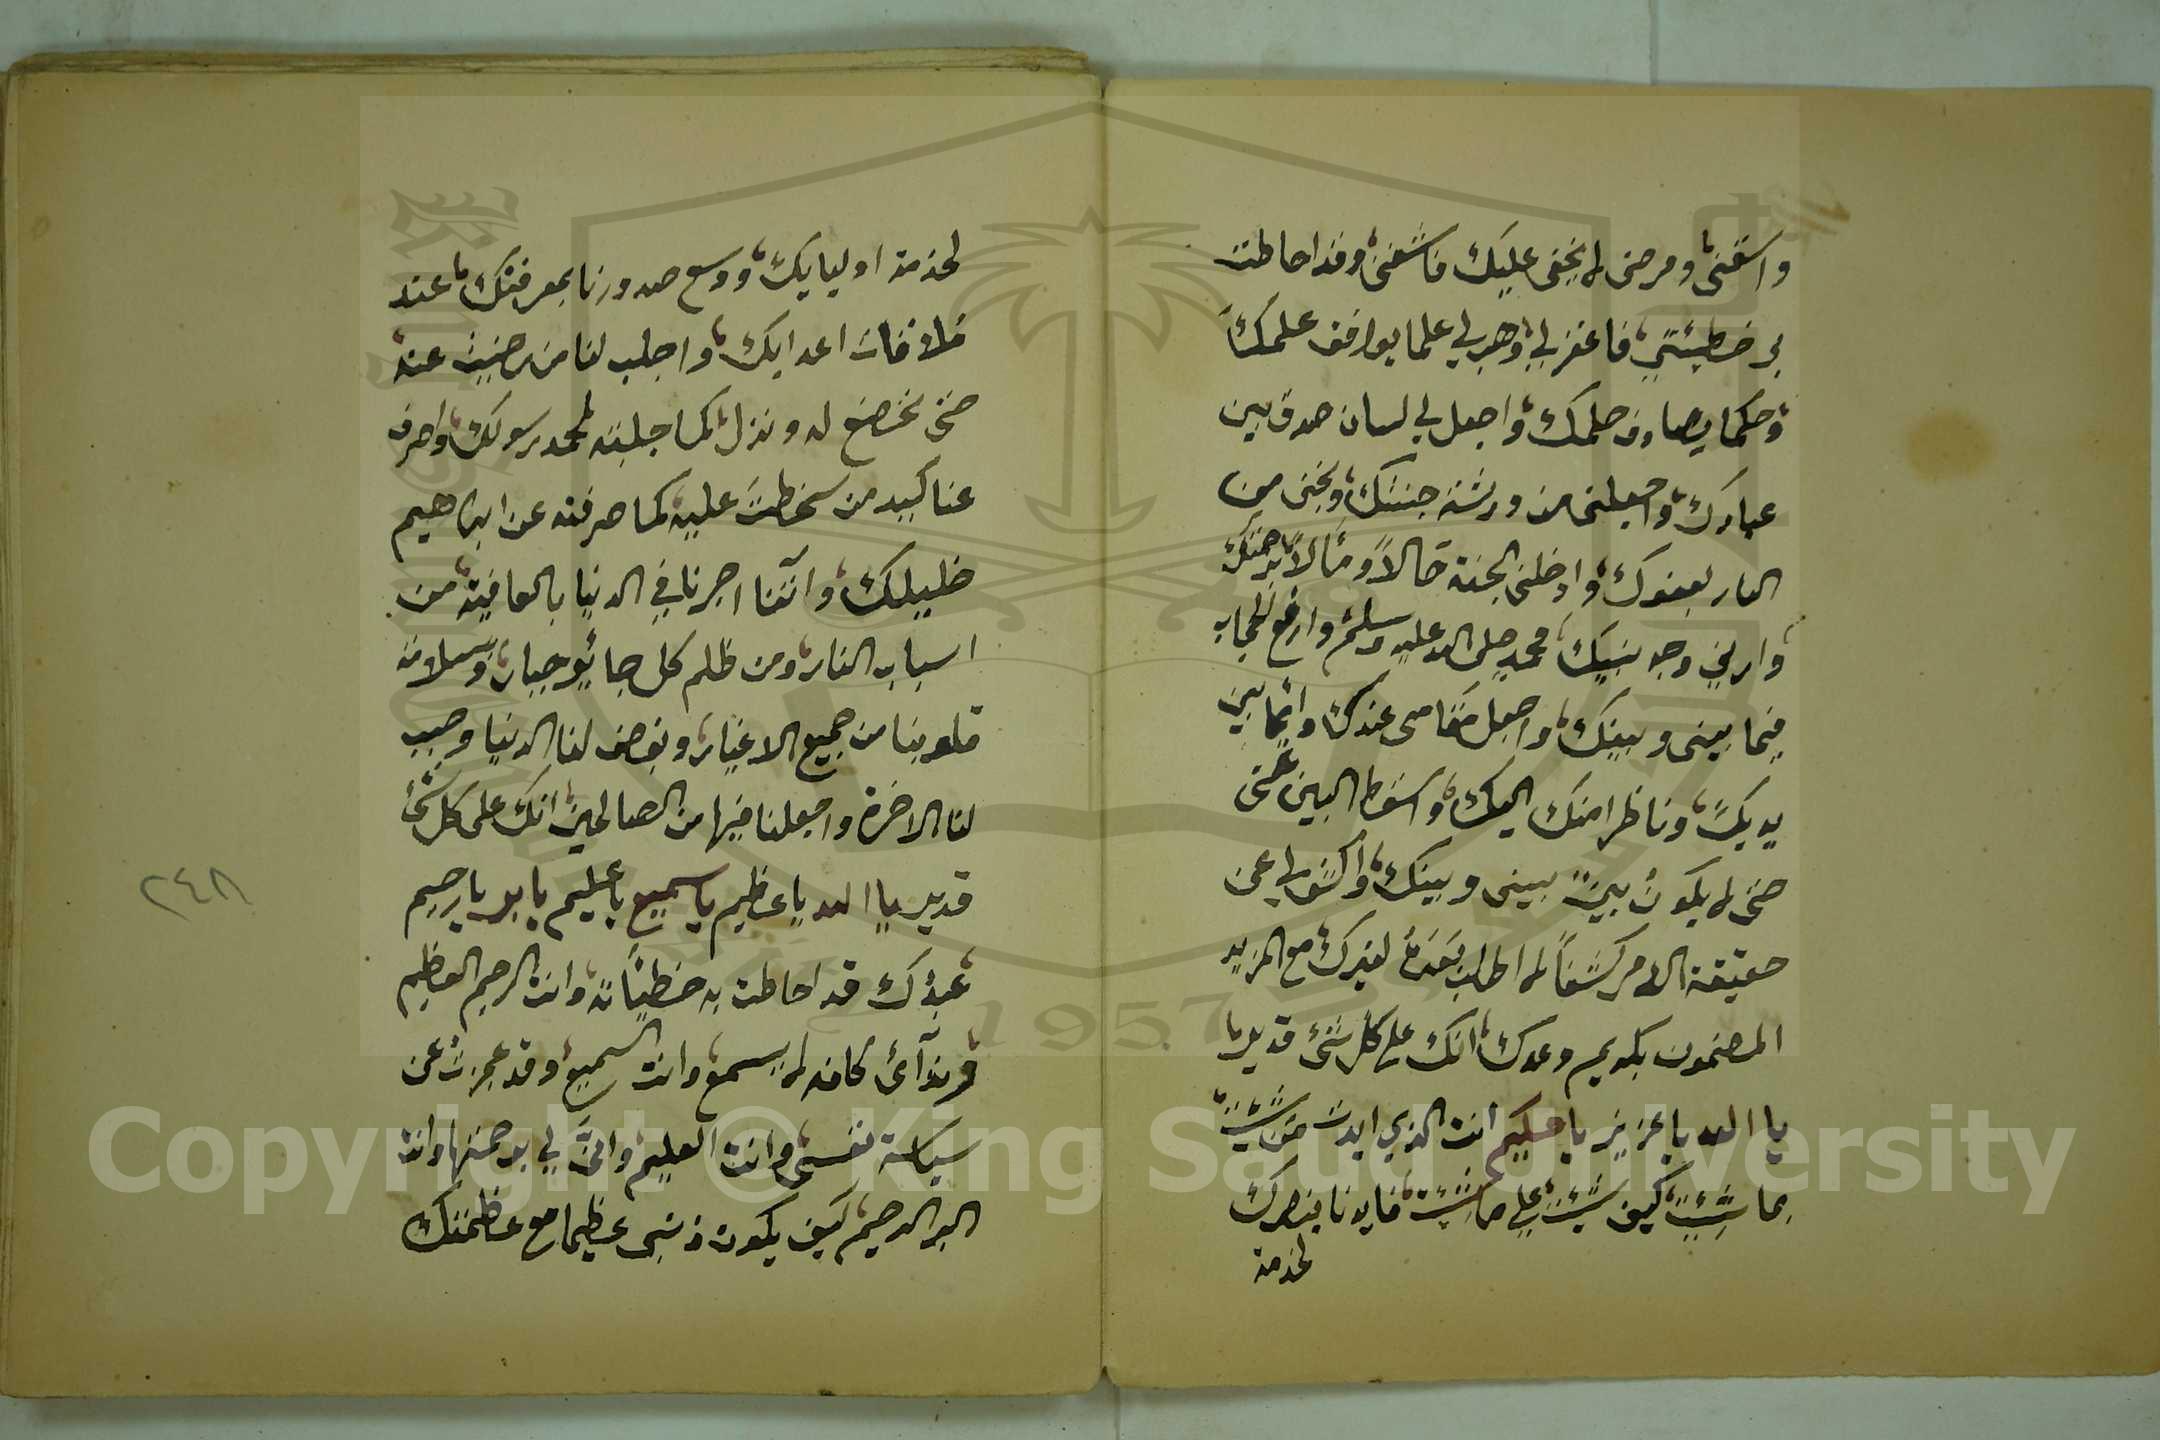 واسقني ومرضي لا يخفى عليك فاشفني وقد احاطت
بي خطيئتي فاغفر لي وهب لي علما يوافق علمك
وحكما يصادف حلمك واجعل لي لسان صدق بين
عبادك واجعلني من ورثة جنتك ونجني من
النار بعفوك وادخلني الجنة حالاً ومآلاً برحمتك
وارني وجه نبيك محمد صلى الله عليه وسلم وارفع الحجاب
فيما بيني وبينك واجعل مقامي عندك دائما بين
يديك وناظرا منك اليك واسقط البين عني
حتى لا يكون بين بيني وبينك واكشف لي عن
حقيقة الامر كشفاً لا اطلب بعده لغيرك مع المزيد
المضمون بكريم وعدك انك على كل شئ قدير
يا الله يا عزيز يا حكيم انت الذي ايدت من شئت
بما شئت كيف شئت على ما شئت فايدنا بنصرك
لخدمة
لخدمة اوليايك ووسع صدورنا بمعرفتك عند
ملاقات اعدايك واجلب لنا من رضيت عنه
حتى نخضع له ونذل كما جلبته لمحمد رسولك واصرف
عنا كيد من سخطت عليه كما صرفته عن ابراهيم
خليلك وآتنا اجرنا في الدنيا بالعافية من
اسباب النار ومن ظلم كل جائر جبار وسلامة
قلوبنا من جميع الاغيار وبغض لنا الدنيا وحبب
لنا الاخرة واجعلنا فيها من الصالحين انك على كل شئ
قدير يا الله يا عظيم يا سميع يا عليم يا بر يا رحيم
عبدك قد احاطت به خطيئاته وانت الرحيم العظيم
وندآئ كانه لا يسمع وانت السميع وقد عجزت عن
سياسة نفسي وانت العليم وانى لي برحمتها وانت
البر الرحيم كيف يكون ذنبي عظيما مع عظمتك
٢٤٨
1957
Copyright © King Saud University